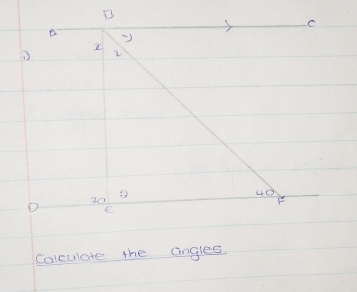 B
A C
1)
x y
z
70 a 40
D E F
Calculate the angles